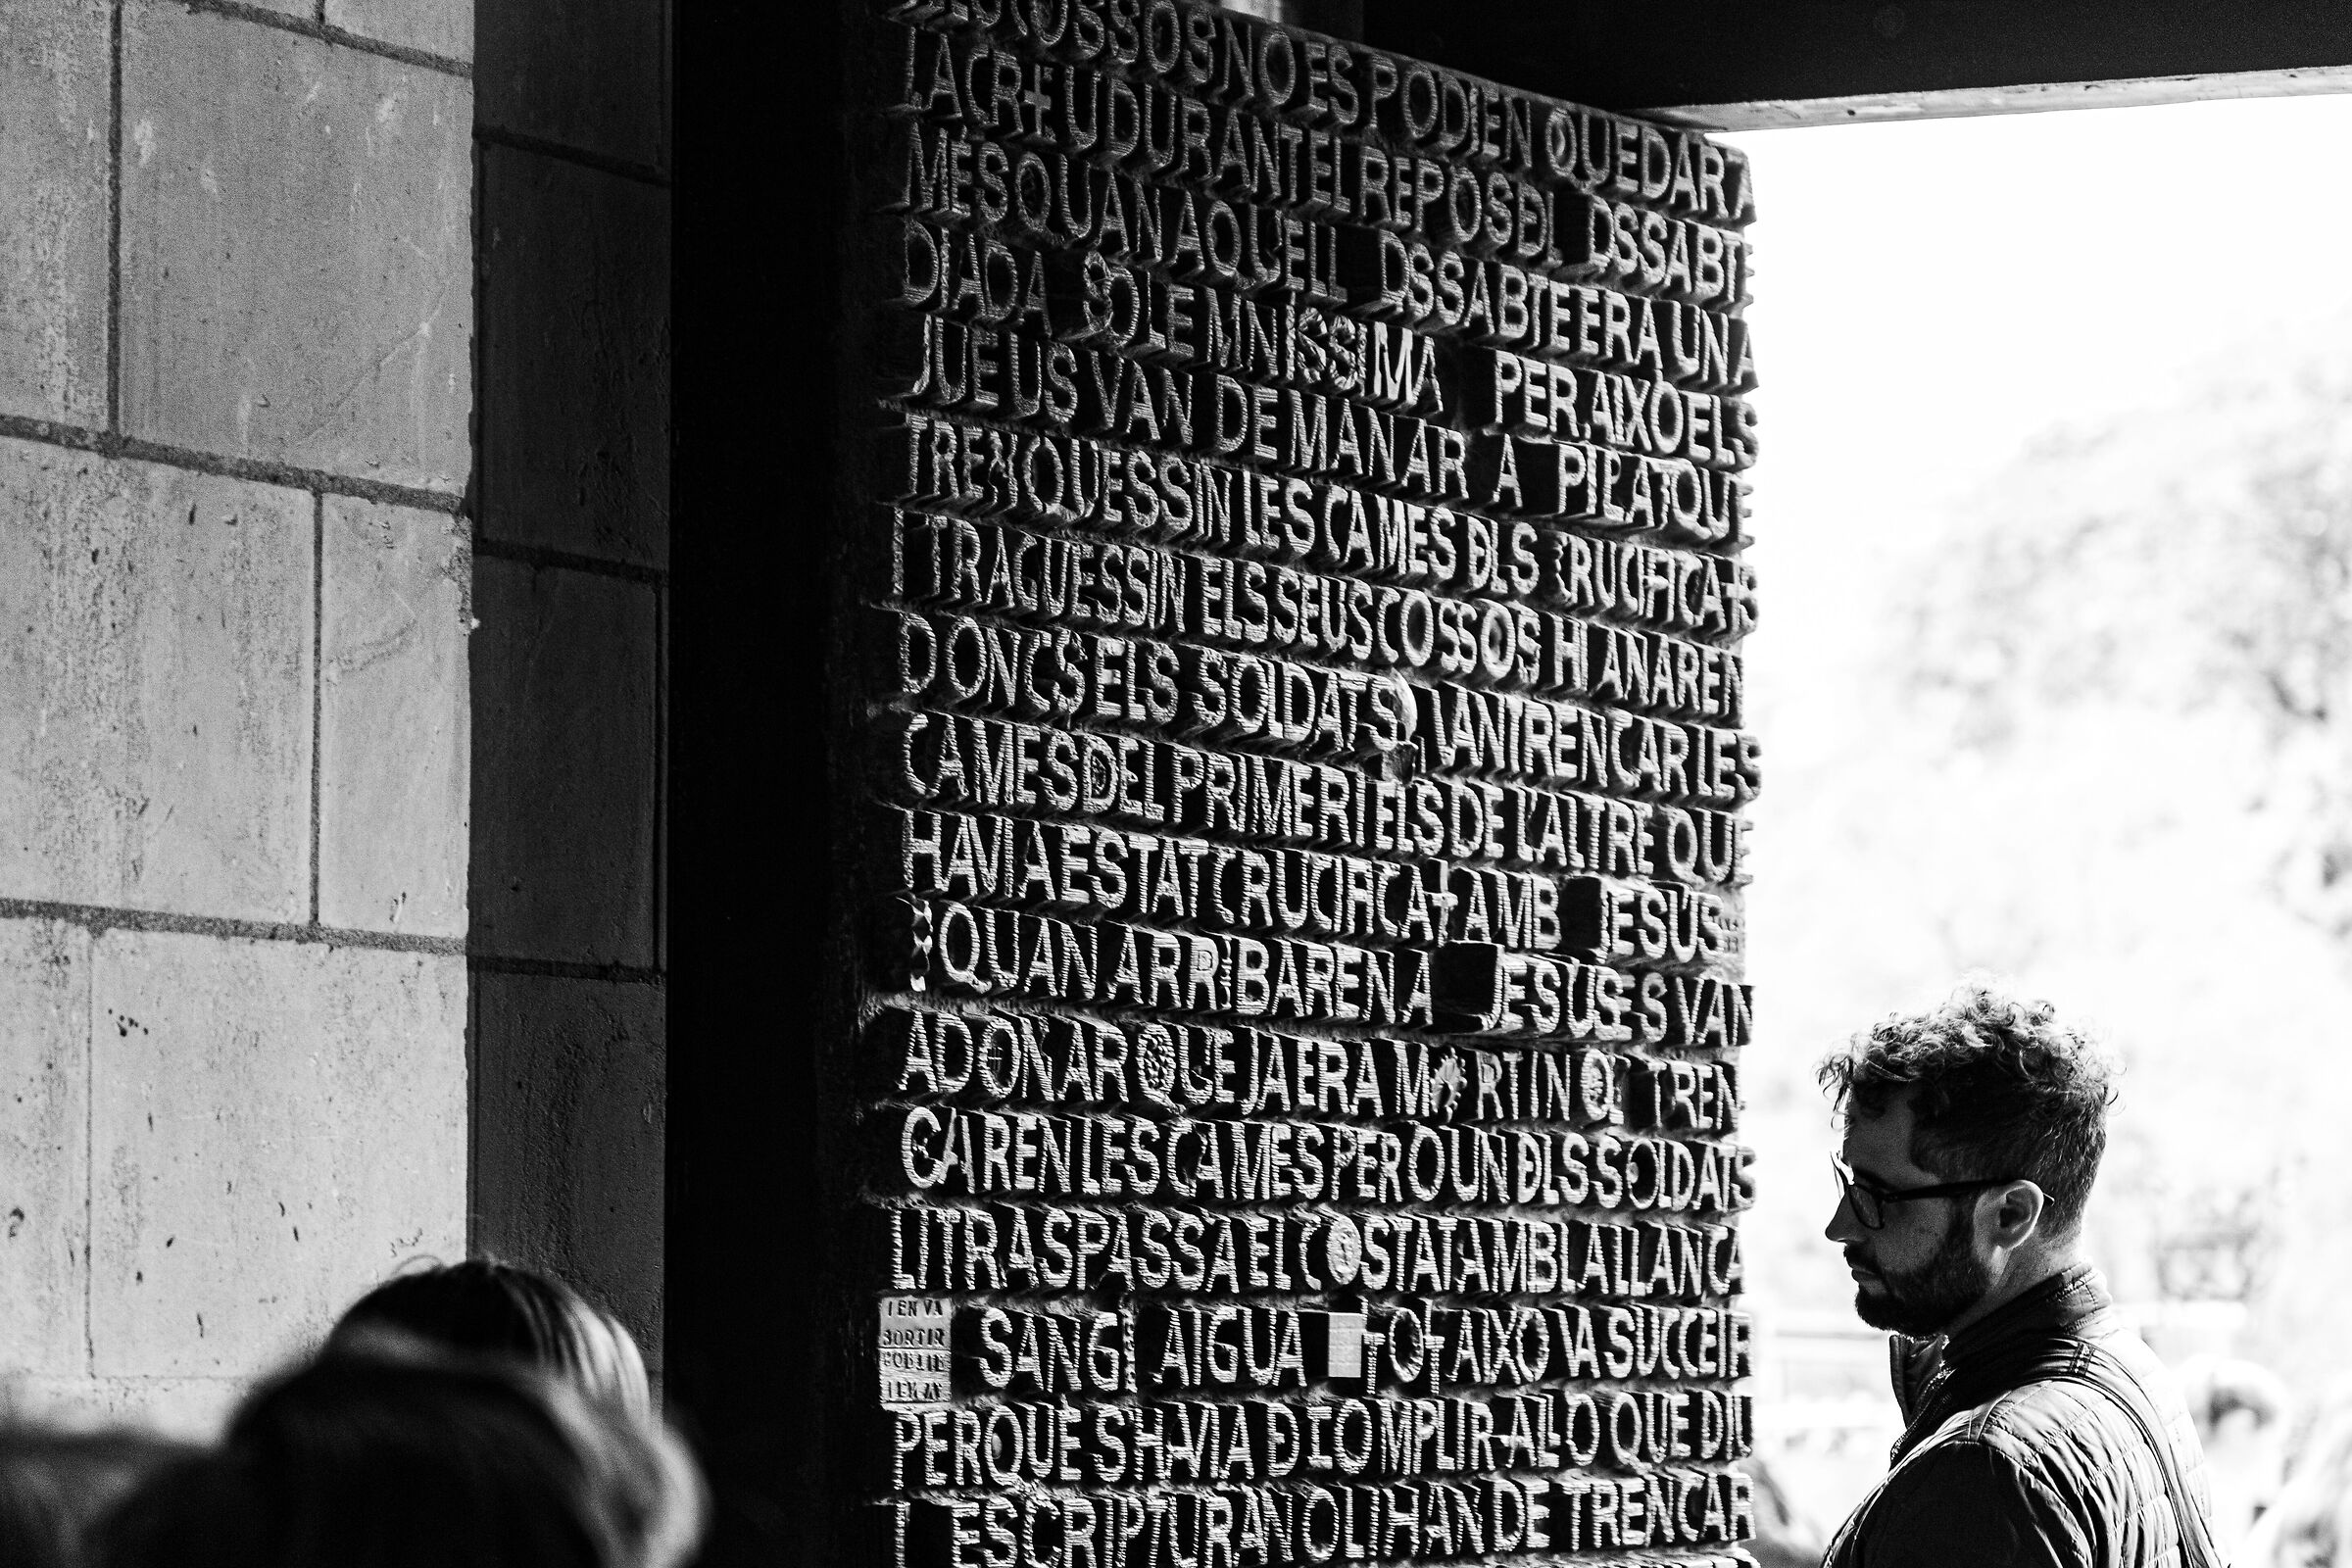 COSSOS NO ES PODIEN QUEDAR A
LA CREU DURANT EL REPOS DEL DISSABTE
MES QUAN AQUELL DISSABTE ERA UNA
DIADA SOLEMNISSIMA PER AIXO ELS
JUEUS VAN DEMANAR A PILAT QUE
TRENQUESSIN LES CAMES DELS CRUCIFICATS
I TRAGUESSIN ELS SEUS COSSOS HI ANAREN
DONCS ELS SOLDATS I VAN TRENCAR LES
CAMES DEL PRIMER I ELS DE L'ALTRE QUE
HAVIA ESTAT CRUCIFICAT AMB JESUS
QUAN ARRIBAREN A JESUS ES VAN
ADONAR QUE JA ERA MORT I NO LI TREN
CAREN LES CAMES PERO UN DELS SOLDATS
LI TRASPASSA EL COSTAT AMB LA LLANÇA
I EN VA
SORTIR
SANG I AIGUA TOT AIXO VA SUCCEIR
PERQUE S HAVIA D COMPLIR ALLO QUE DIU
L ESCRIPTURA NO LI HAN DE TRENCAR